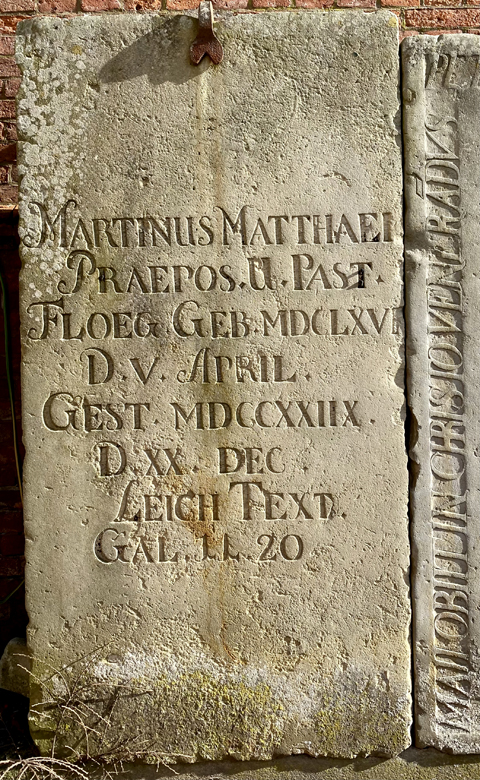 MARTINUS MATTHAEI
PRAEPOS. U. PAST.
FLOEG GEB. MDCLXVI
D. V. APRIL.
GEST. MDCCXXIIX.
D. XX. DEC.
LEICH TEXT.
GAL. II. 20
MAII OBIIT IN CHRISTO VENERADVS